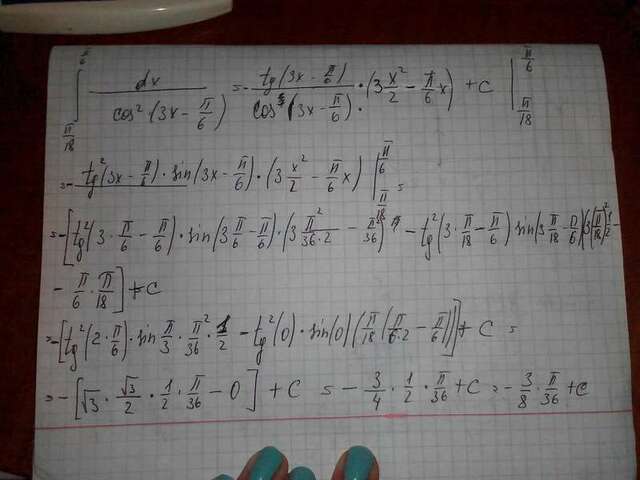 ∫_{π/18}^{π/6} dx / cos²(3x − π/6) = − tg(3x − π/6) / cos(3x − π/6) · (3 x²/2 − π/6 x) + C |_{π/18}^{π/6}
= − tg²(3x − π/6) · sin(3x − π/6) · (3 x²/2 − π/6 x) |_{π/18}^{π/6} =
= −[tg²(3 · π/6 − π/6) · sin(3 π/6 − π/6) · (3 π²/(36·2) − π²/36) − tg²(3 · π/18 − π/6) sin(3 π/18 − π/6)(3(π/18)² 1/2 −
− π/6 · π/18] + C
= −[tg²(2 · π/6) · sin π/3 · π²/36 · 1/2 − tg²(0) · sin(0)(π/18(π/6·2 − π/6))] + C =
= −[√3 · √3/2 · 1/2 · π/36 − 0] + C = − 3/4 · 1/2 · π/36 + C = − 3/8 · π/36 + C